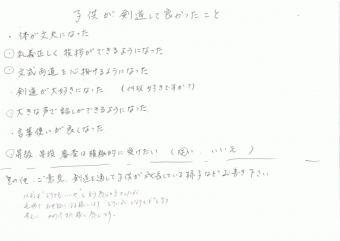 子供が剣道して良かったこと
・体が丈夫になった
①礼義正しく挨拶ができるようになった
①文武両道を心掛けるようになった
・剣道が大好きになった (何故好きですか?)
②大きな声で話しができるようになった
・言葉使いが良くなった
②昇級 昇段 審査は積極的に受けたい (はい いいえ)
その他、ご意見、剣道を通して子供が成長している様子などお書き下さい